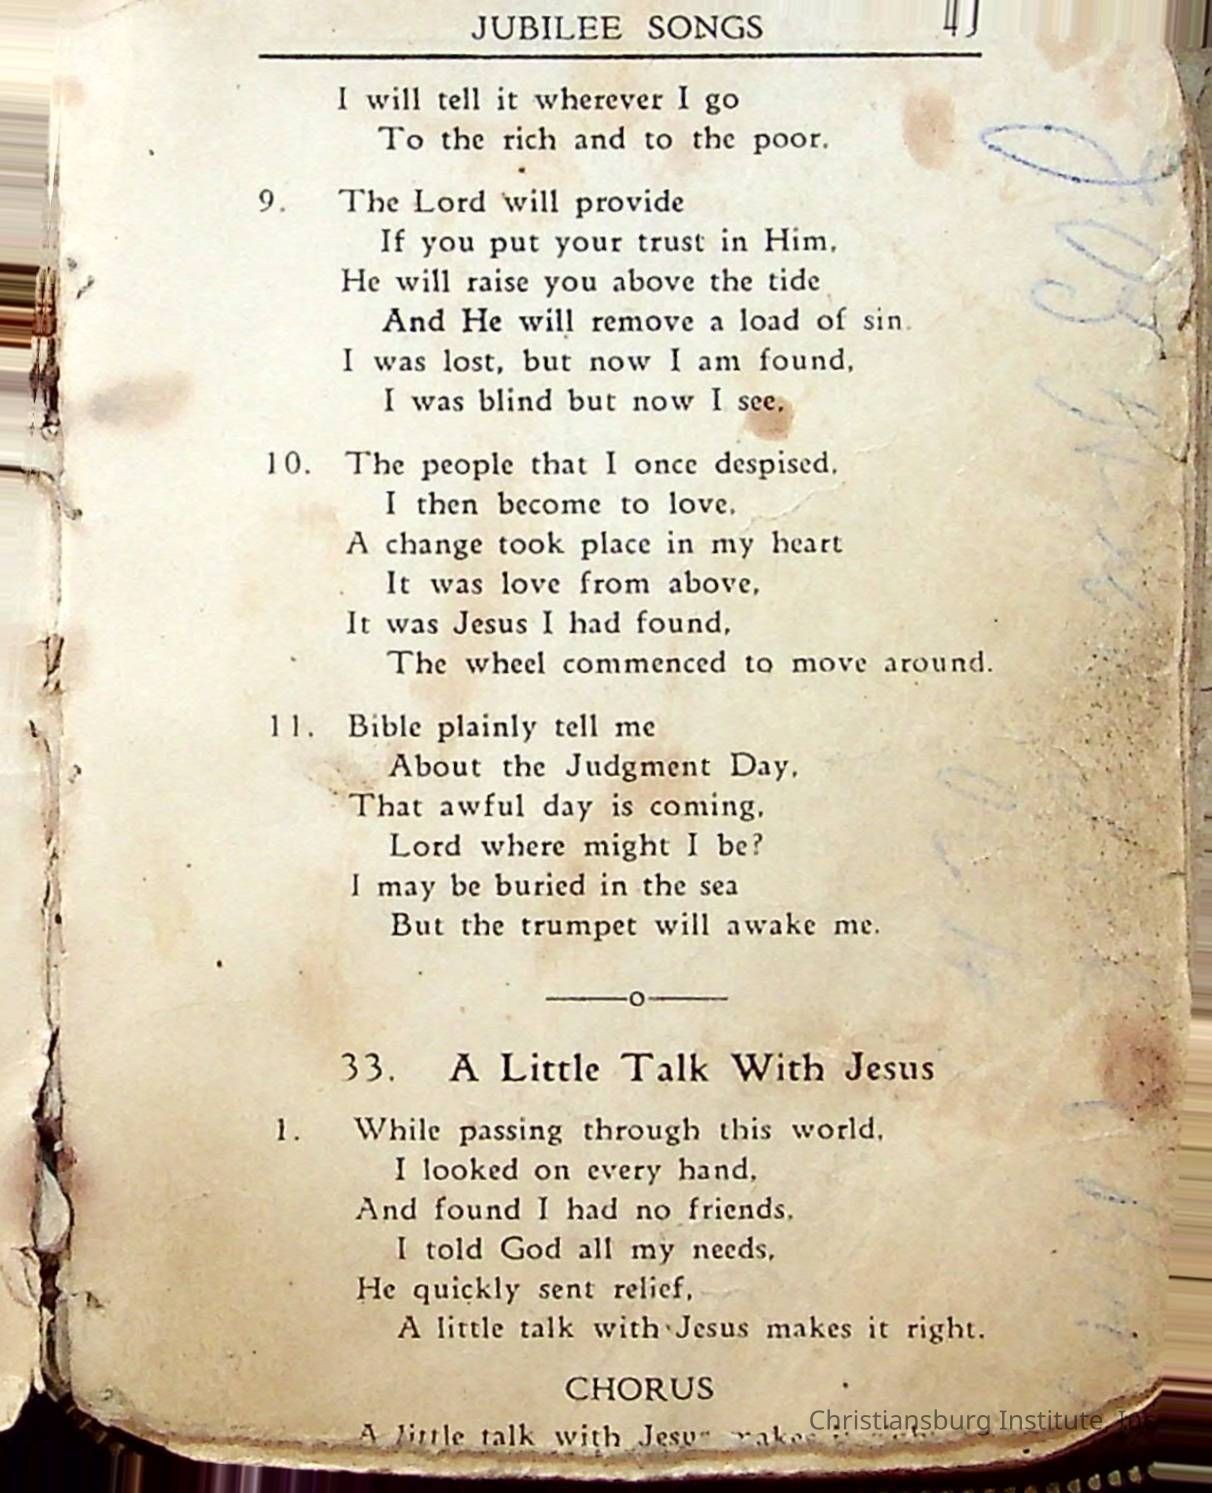 JUBILEE SONGS
I will tell it wherever I go
To the rich and to the poor.
9. The Lord will provide
If you put your trust in Him,
He will raise you above the tide
And He will remove a load of sin.
I was lost, but now I am found,
I was blind but now I see.
10. The people that I once despised,
I then become to love,
A change took place in my heart
It was love from above,
It was Jesus I had found,
The wheel commenced to move around.
11. Bible plainly tell me
About the Judgment Day,
That awful day is coming,
Lord where might I be?
I may be buried in the sea
But the trumpet will awake me.
o
33. A Little Talk With Jesus
1. While passing through this world,
I looked on every hand,
And found I had no friends,
I told God all my needs,
He quickly sent relief,
A little talk with Jesus makes it right.
CHORUS
A little talk with Jesus makes
Christiansburg Institute, Inc.